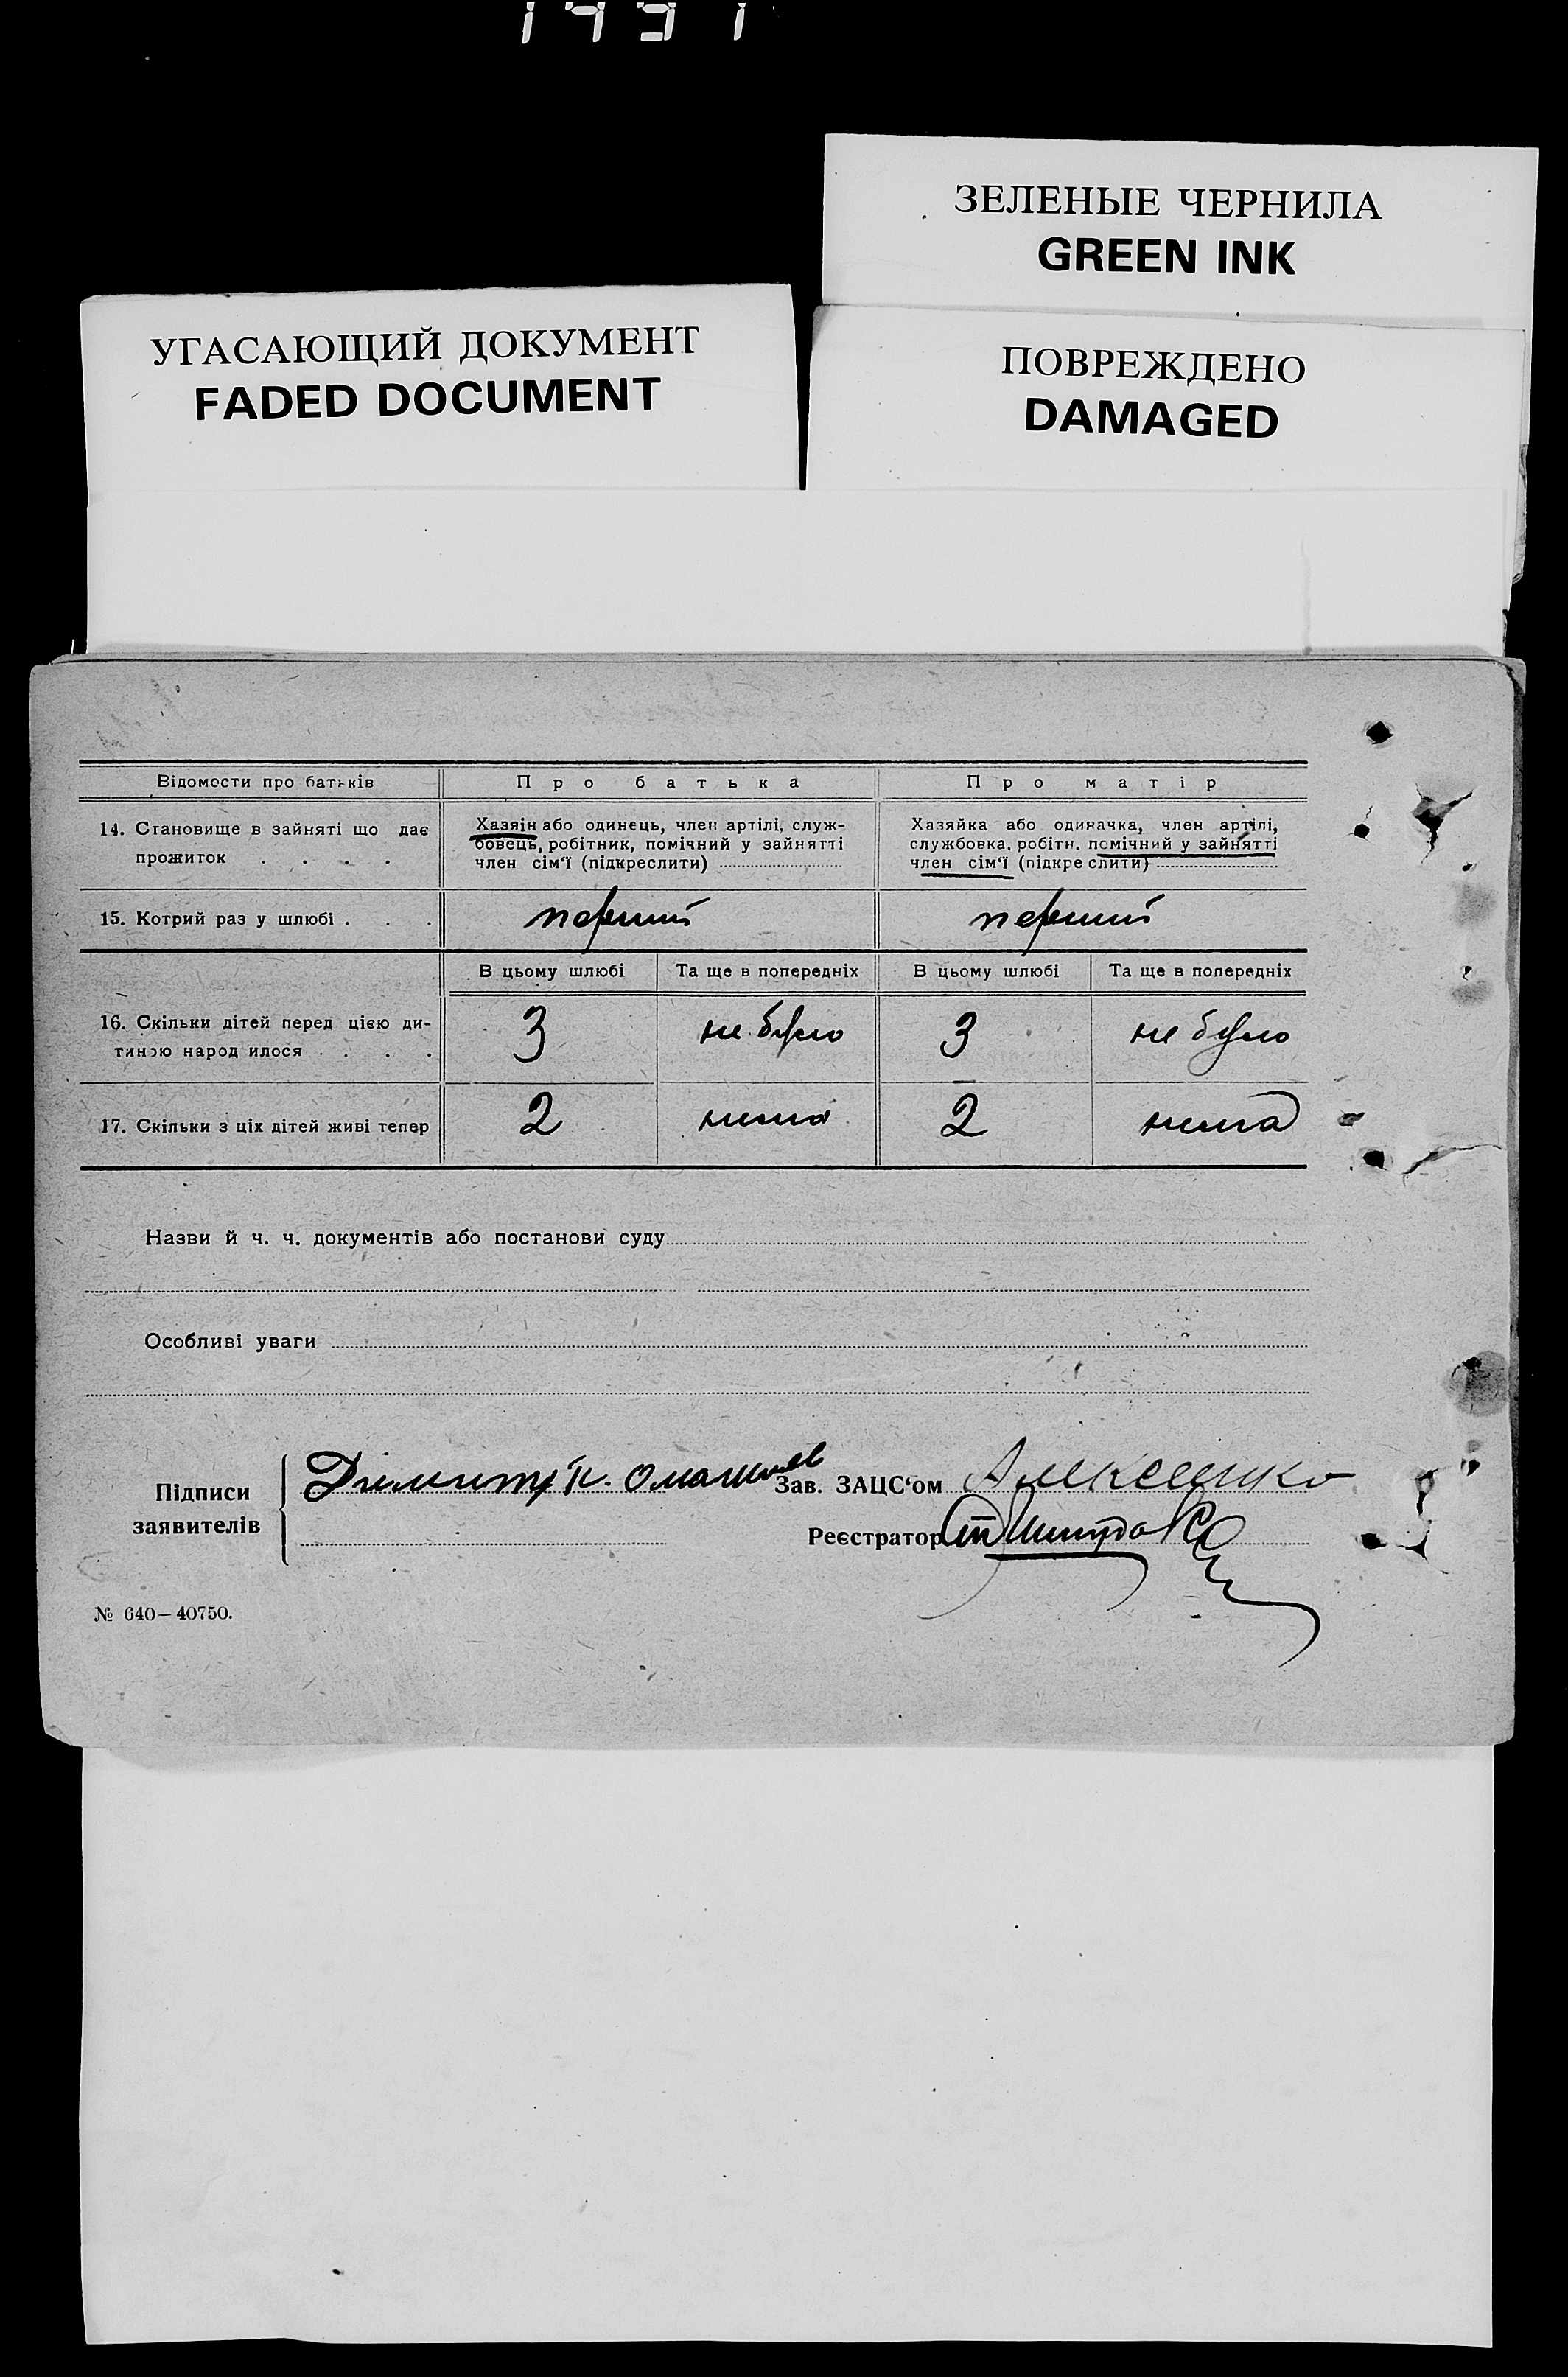 ЗЕЛЕНЫЕ ЧЕРНИЛА
GREEN INK
УГАСАЮЩИЙ ДОКУМЕНТ
FADED DOCUMENT
ПОВРЕЖДЕНО
DAMAGED
Відомости про батьків
Про батька
Про матір
14. Становище в зайняті що дає
прожиток . . . .
Хазяїн або одинець, член артілі, служ-
бовець, робітник, помічний у зайнятті
член сім'ї (підкреслити)
Хазяйка або одиначка, член артілі,
службовка, робітн. помічний у зайнятті
член сім'ї (підкреслити)
15. Котрий раз у шлюбі . . .
перший
перший
В цьому шлюбі
Та ще в попередніх
В цьому шлюбі
Та ще в попередніх
16. Скільки дітей перед цією ди-
тиною народилося . . . .
3
не було
3
не було
17. Скільки з ціх дітей живі тепер
2
нема
2
нема
Назви й ч. ч. документів або постанови суду
Особливі уваги
Підписи
заявителів
Зав. ЗАЦС'ом
Реєстратор
№ 640—40750.